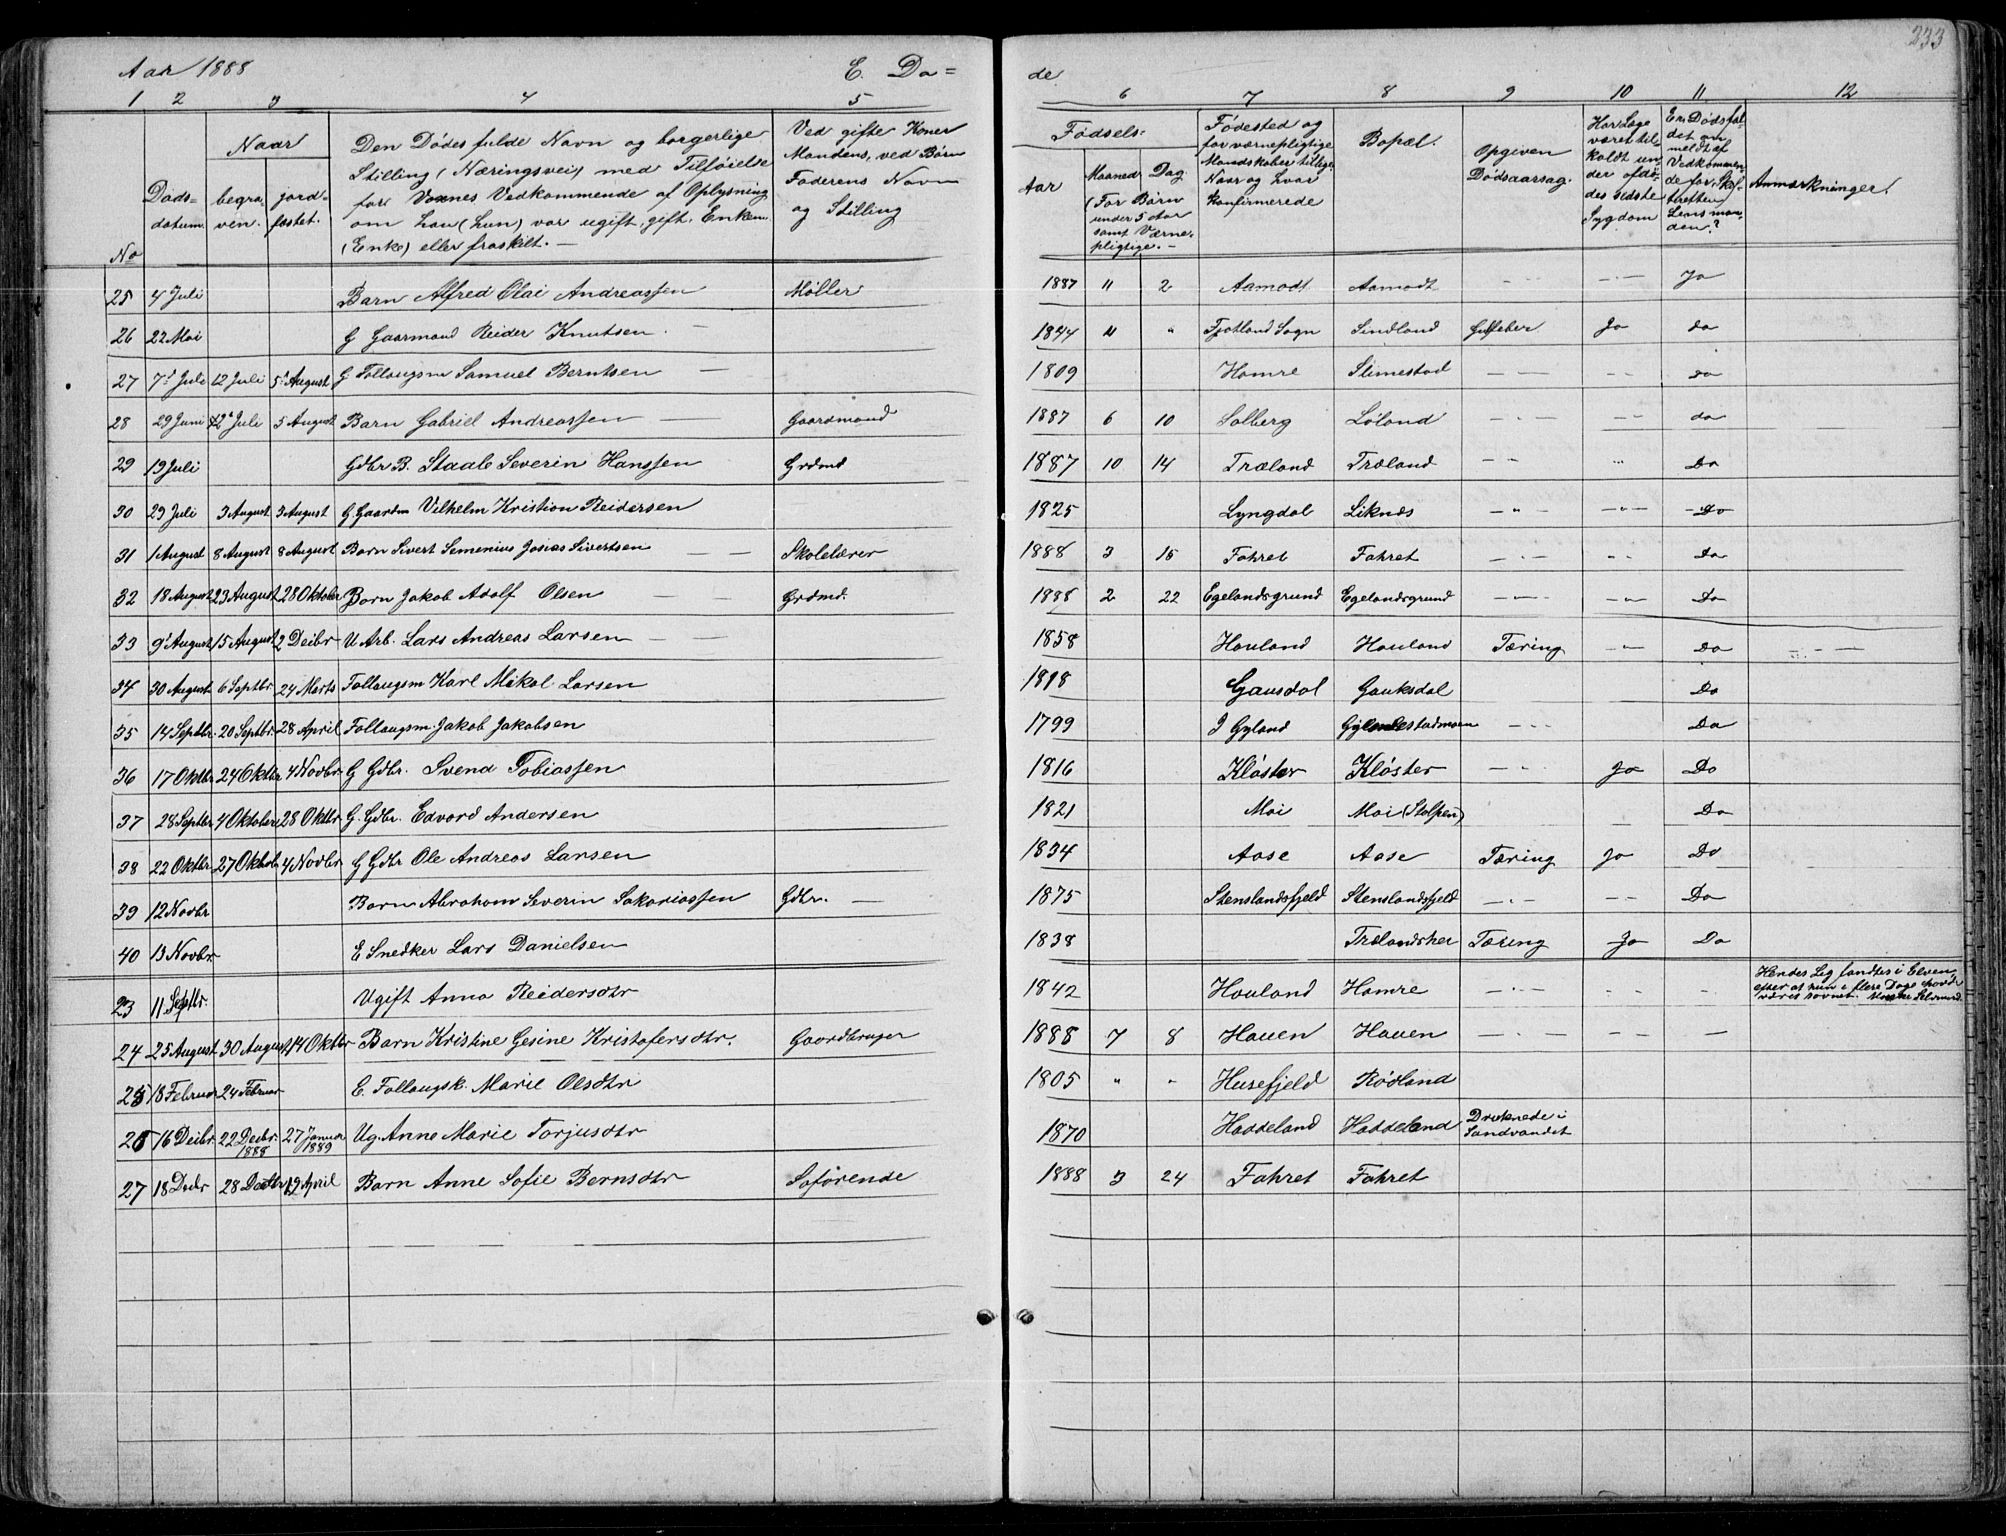 233
Aar 1888 E. Dø= de
1 2 3 4 5 6 7 8 9 10 11 12
No
Døds= datum.
Naar
begra- ven. jord- fæstet.
Den Dødes fulde Navn og borgerlige
Stilling (Næringsvei) med Tilføielse
for Voxnes Vedkommende af Oplysning
om han (hun) var ugift, gift, Enkem.
(Enke) eller fraskilt. —
Ved gifte Koner
Mandens, ved Børn
Faderens Navn
og Stilling
Fødsels=
Aar
Maaned Dag
(For Børn
under 5 Aar
samt Værne-
pligtige. —
Fødested og
for værnepligtige
Mandskaber tillige
Naar og hvor
Konfirmerede
Bopæl.
Opgiven
Dødsaarsag.
Har Læge
været til-
kaldt un-
der afdø-
des sidste
Sygdom
Er Dødsfal-
det an
meldt af
Vedkommen-
de for Skif-
teretten
Lensman-
den?
Anmærkninger.
25 4 Juli Barn Alfred Olai Andreassen Møller 1887 11 2 Aamodt Aamodt - - - Ja
26 22 Mai G Gaarmand Reider Knutsen. — 1844 " " Fjotland Sogn Sindland Ja do
27 7d Juli 12 Juli 5d August G Follaugsm Samuel Berntsen — 1809 Homre Slimestad — - — - - do
28 29 Juni 2d Juli 5 August Barn Gabriel Andreassen — Gaardmand 1887 6 10 Solberg Løland - - - - - - do
29 19 Juli Gdbr B. Staale Severin Hanssen Grdmd 1887 10 14 Træland Træland - - " Do
30 29 Juli 3 August 3 August G. Gaardm Vilhelm Kristian Reidersen 1825 Lyngdal Liknæs — " — — " — Do
31 1 August 8 August 8 August Barn Sivert Semenius Josias Sivertsen — — Skolelærer 1888 3 15 Fahret Fahret — - — - - Do
32 18 August 23 August 28 Oktober Barn Jakob Adolf Olsen — — Grdmd. 1888 2 22 Egelandsgrund Egelandsgrund — - — - — " — Do
33 9d August 15 August 2 Decbr U Arb. Lars Andreas Larsen — — 1858 Houland Houland Tæring — " — Do — - — - —
34 30 August 6 Septbr 24 Marts Follaugsm Karl Mikal Larsen 1818 Gausdal Gauksdal Do
35 14 Septbr. 20 Septbr. 28 April Follaugsm. Jakob Jakobsen 1799 I Gyland - - - Do
36 17 Oktbr 24 Oktbr 4 Novbr G Gdbr. Svend Tobiassen 1816 Kløster Kløster — - - Ja Do
37 28 Septbr 4 Oktober 28 Oktbr G. Gdbr. Edvard Andersen 1821 Moi Moi (Stolpen) Do
38 22 Oktbr. 27 Oktob. 4 Novbr G Gdbr Ole Andreas Larsen 1834 Aase Aase Tæring Ja Do
39 12 Novbr Barn Abraham Severin Sakariassen Gdbr. — 1875 Stenslandsfjeld Stenslandsfjeld — - — - - - Do
40 13 Novbr. E Snedker Lars Danielsen 1838 Trælandshei Tæring Ja Do
23 11 Septbr. Ugift Anna Reidersdtr 1842 Houland Homre — - — - - - Hendes Lig fandtes i Elven
efter at hun i flere Dage havde
været savnet.
24 25 August 30 August 14 Oktbr Barn Kristine Gesine Kristofersdtr. Gaardbruger 1888 7 8 Hauen Hauen — - — — — —
25 18 Februar 24 Februar E. Follaugsk. Marie Olsdtr 1805 " " Husefjeld Rødland
26 16 Decbr. 22 Decbr. 1888 27 Januar 1889 Ug. Anne Marie Torjusdtr 1870 Haddeland Haddeland Druknede i
Landvandet
27 18 Decbr 28 Decbr 19 April Barn Anne Sofie Bernsdtr Søfarende 1888 3 24 Fahret Fahret